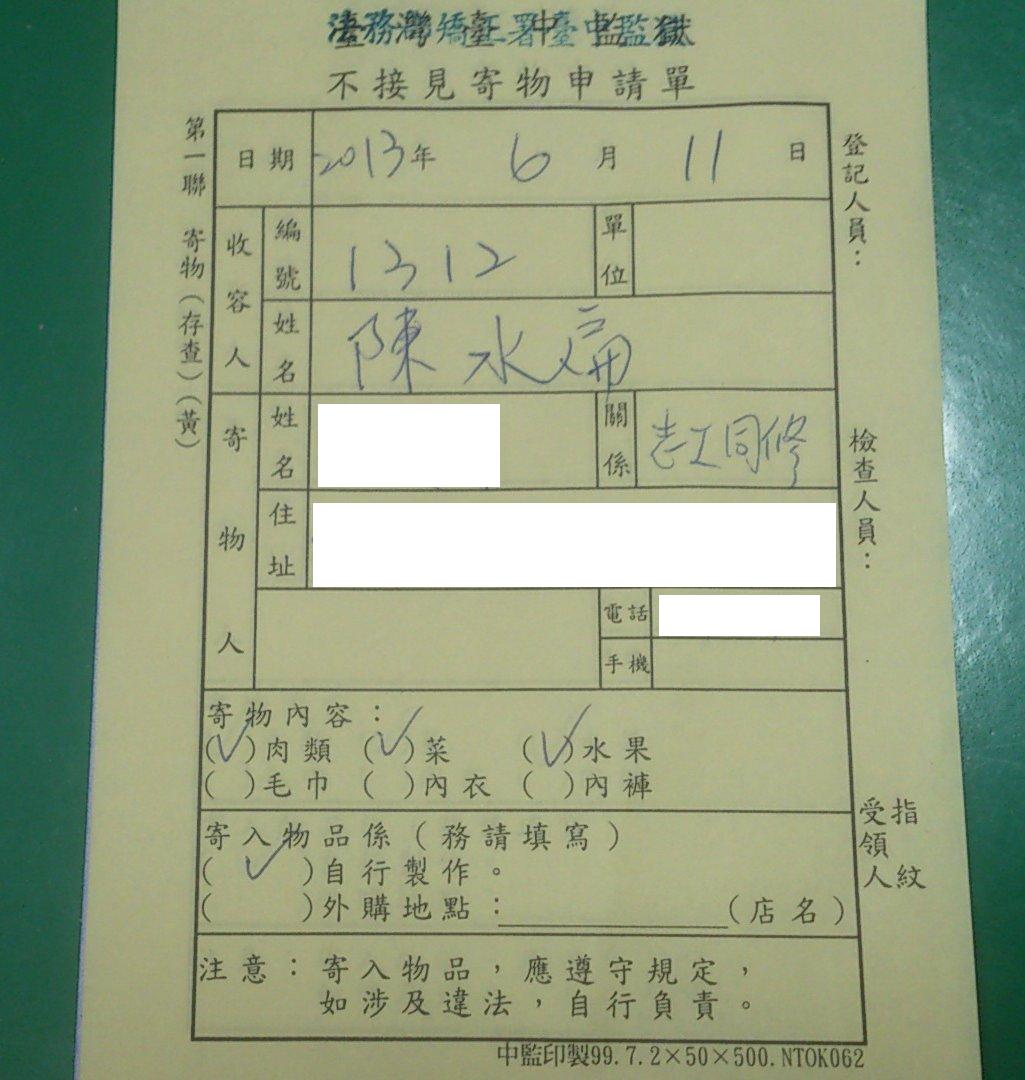 法務部矯正署臺中監獄
不接見寄物申請單
第一聯 寄物(存查)(黃)
日期 2013年 6 月 11 日
收容人 編號 1312 單位
姓名 陳水扁
寄物人 姓名 關係 志工同修
住址
電話
手機
寄物內容：
(✓)肉類 (✓)菜 (✓)水果
( )毛巾 ( )內衣 ( )內褲
寄入物品係(務請填寫)
( ✓ )自行製作。
( )外購地點：(店名)
注意：寄入物品，應遵守規定，
如涉及違法，自行負責。
登記人員：
檢查人員：
受領人
指紋
中監印製99.7.2×50×500.NTOK062